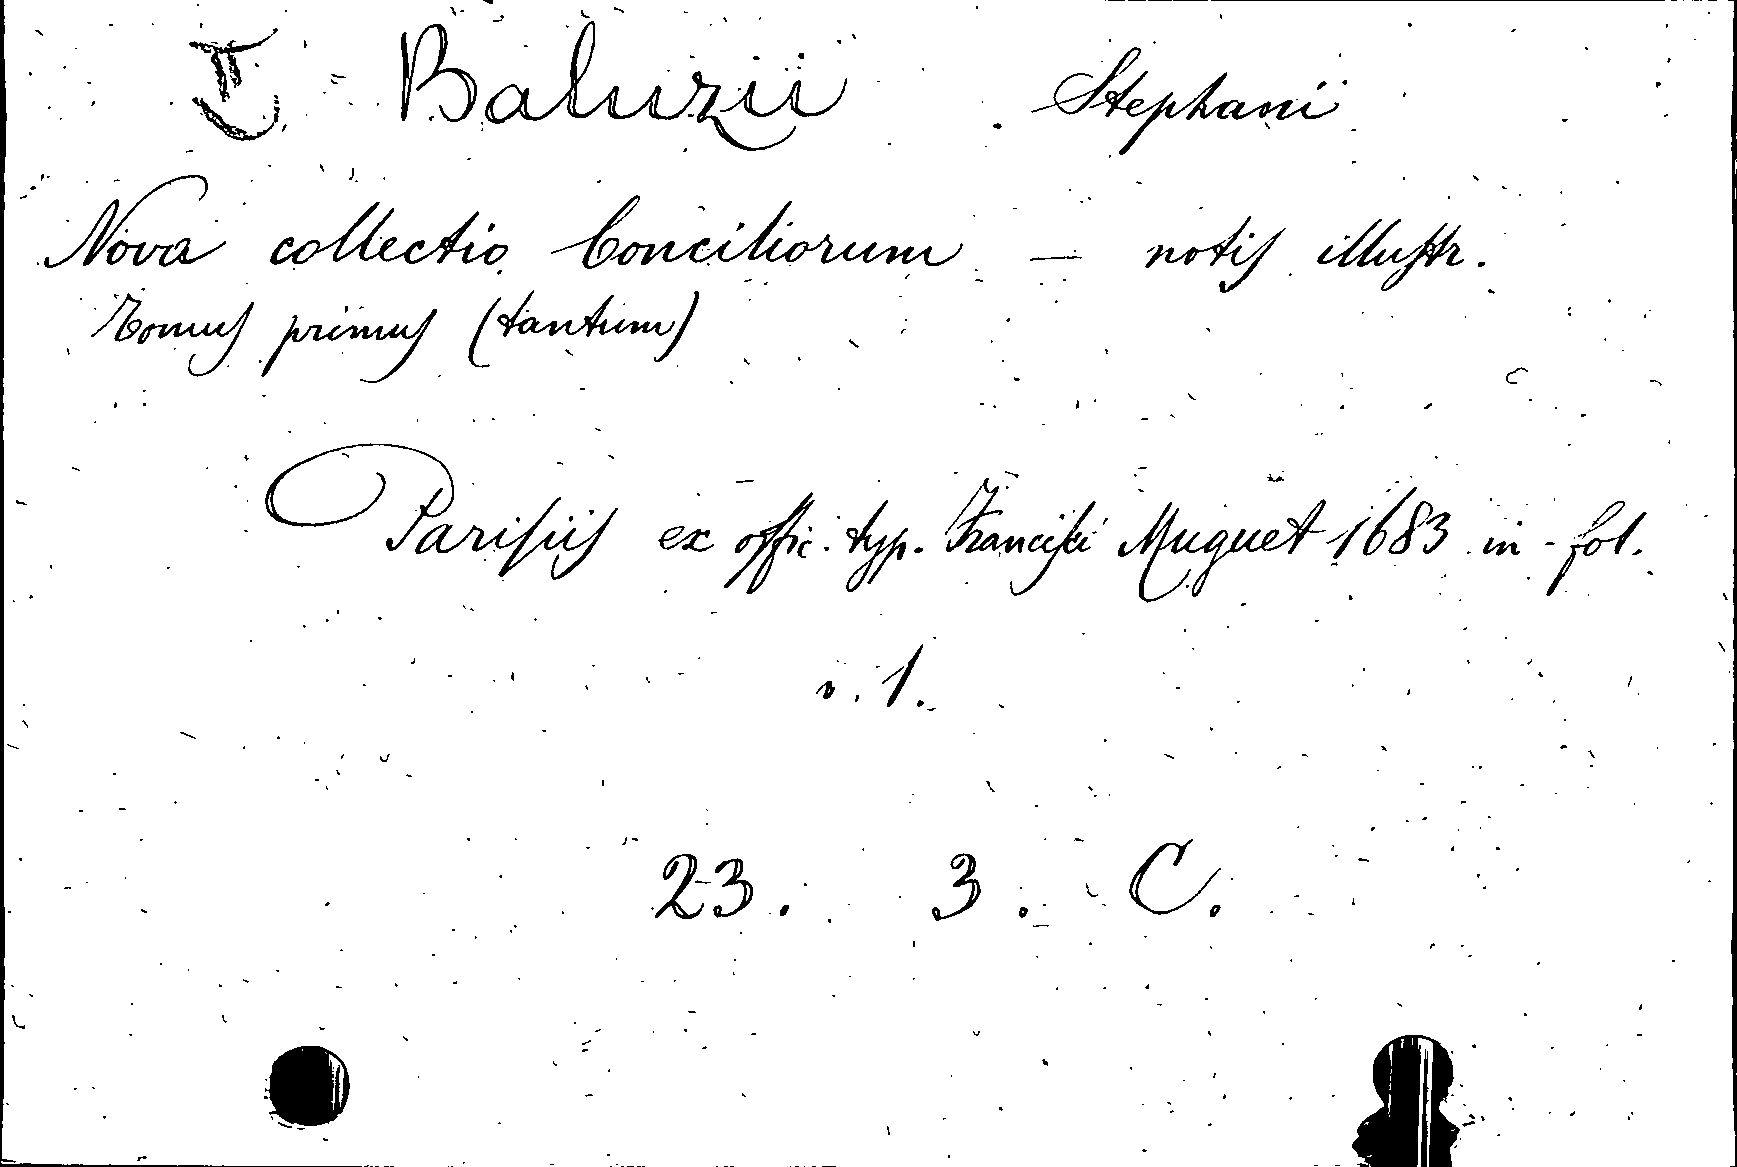 Baluzii Stephani
Nova collectio Conciliorum — notis illustr.
Tomus primus (tantum)
Parisiis ex offic. typ. Francisci Muguet 1683 in-fol.
v. 1.
23. 3. C.